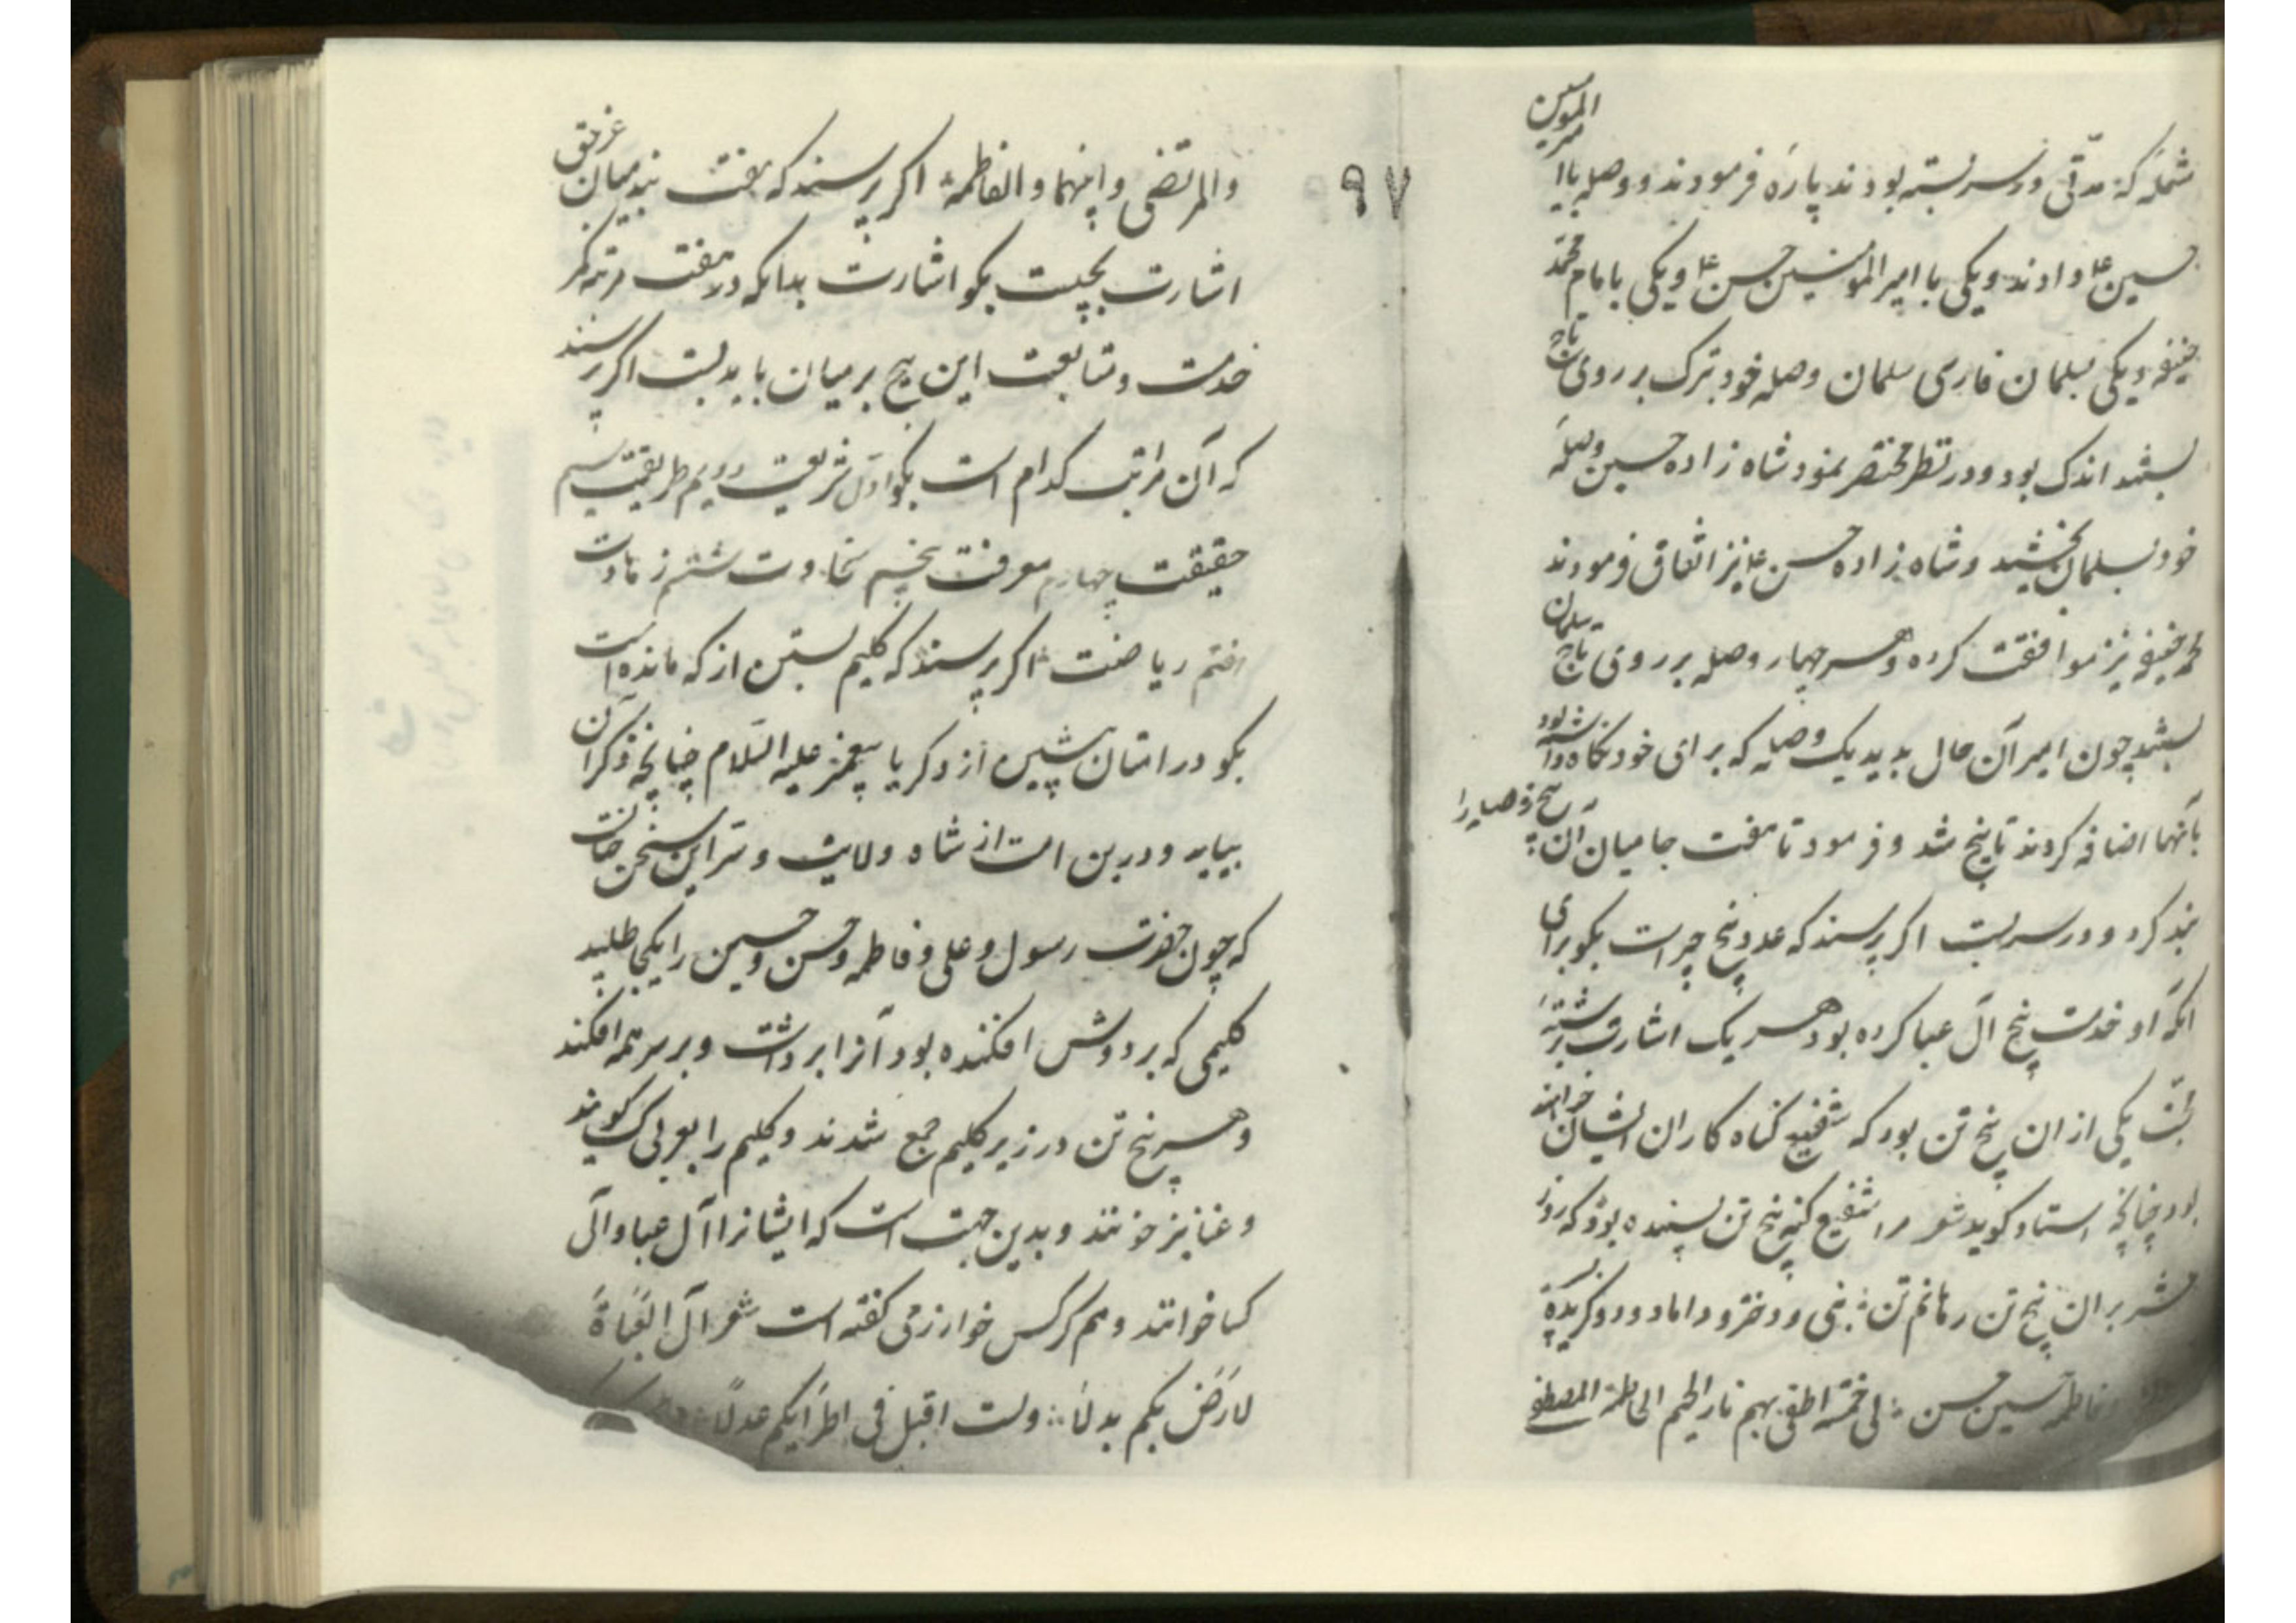 شمله که مدتی در سر بسته بودند پاره فرمودند و وصله با امیر المومنین
حسین ع دادند و یکی با امیر المومنین حسن ع و یکی بامام محمد
حنیفه و یکی بسلمان فارسی سلمان وصله خود بترک بر روی تاج
بستند اندک بود و در نظر مختصر بنمود شاه زاده حسین وصله
خود بسلمان بخشید و شاه زاده حسن ع نیز اتفاق فرمودند
محمد حنیفه نیز موافقت کرده و هر چهار وصله بر روی تاج سلمان
بستند چون امیر آن حال بدید یک وصله که برای خود نگاه داشته بود
بآنها اضافه کردند تا پنج شد و فرمود تا هفت جا میان آن پنج وصله را
بند کرد و در سر بست اکر پرسند که عدد پنج چراست بکو برای
آنکه او خدمت پنج آل عبا کرده بود هر یک اشارت برشته
محبت یکی از ان پنج تن بود که شفیع کناه کاران ایشان خواهند
بود چنانچه استاد کوید شعر مرا شفیع کنه پنج تن بسنده بود که روز
حشر بر ان پنج تن رهانم تن : نبی و دختر و داماد و دو کزیده پسر
فاطمه حسین حسن : لی خمسة اطفی بهم نار الجحیم الحاطمة المصطفی
۹۷
والمرتضی و ابنهما و الفاطمة اکر پرسند که هفت بند میان
اشارت بچیست بکو اشارت بدانکه در هفت مرتبه کمر
خدمت و متابعت این پنج بر میان باید بست اکر پرسند
که آن مراتب کدام است بکو اول شریعت دویم طریقت سیم
حقیقت چهارم معرفت پنجم سخاوت ششم زهادت
هفتم ریاضت اکر پرسند که کلیم بستن از که مانده است
بکو در امتان پیشین از ذکریا پیغمبر علیه السلام چنانچه ذکر آن
بیاید و درین امت از شاه ولایت و سر این سخن چنانست
که چون حضرت رسول و علی و فاطمه و حسن و حسین را یکجا طلبید
کلیمی که بر دوش افکنده بود آنرا برداشت و بر سر همه افکند
و هر پنج تن در زیر کلیم جمع شدند و کلیم را بعربی کسا کویند
و عبا نیز خوانند و بدین جهت است که ایشانرا آل عبا و آل
کسا خوانند و هم کرکس خوارزمی کفته است شعر آل العباة
لارض بکم بدلا : ولست اقبل فی اطرایکم عدلا